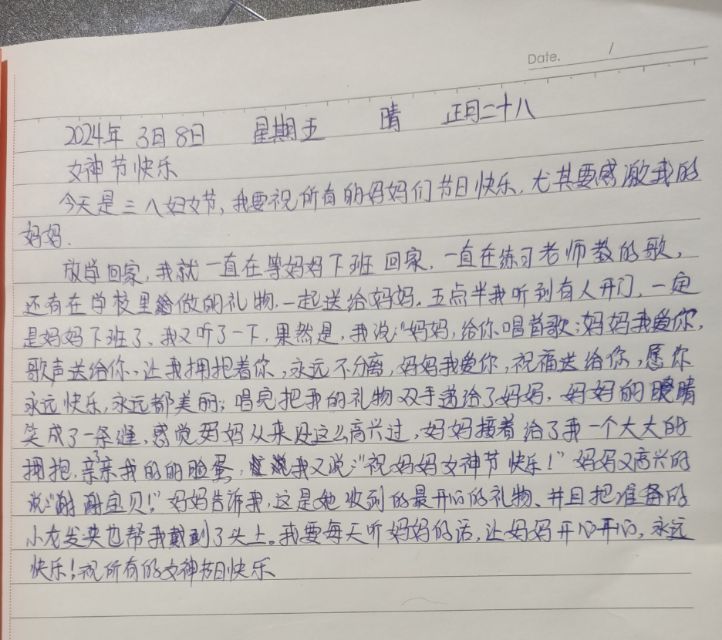 Date. /
2024年 3月8日 星期五 晴 正月二十八
女神节快乐
今天是三八妇女节,我要祝所有的妈妈们节日快乐,尤其要感激我的
妈妈.
放学回家,我就一直在等妈妈下班回家,一直在练习老师教的歌,
还有在学校里给做的礼物.一起送给妈妈.五点半我听到有人开门,一定
是妈妈下班了、我又听了一下,果然是,我说:“妈妈,给你唱首歌:妈妈我爱你,
歌声送给你、让我拥抱着你,永远不分离,妈妈我爱你,祝福送给你,愿你
永远快乐,永远都美丽;唱完把我的礼物双手递给了妈妈,妈妈的眼睛
笑成了一条缝,感觉妈妈从来没这么高兴过,妈妈接着给了我一个大大的
拥抱,亲亲我的的脸蛋,我又说:“祝妈妈女神节快乐!”妈妈又高兴的
说:“谢谢宝贝!”妈妈告诉我,这是她收到的最开心的礼物、并且把准备的
小龙发夹也帮我戴到了头上。我要每天听妈妈的话,让妈妈开心开心,永远
快乐!祝所有的女神节日快乐